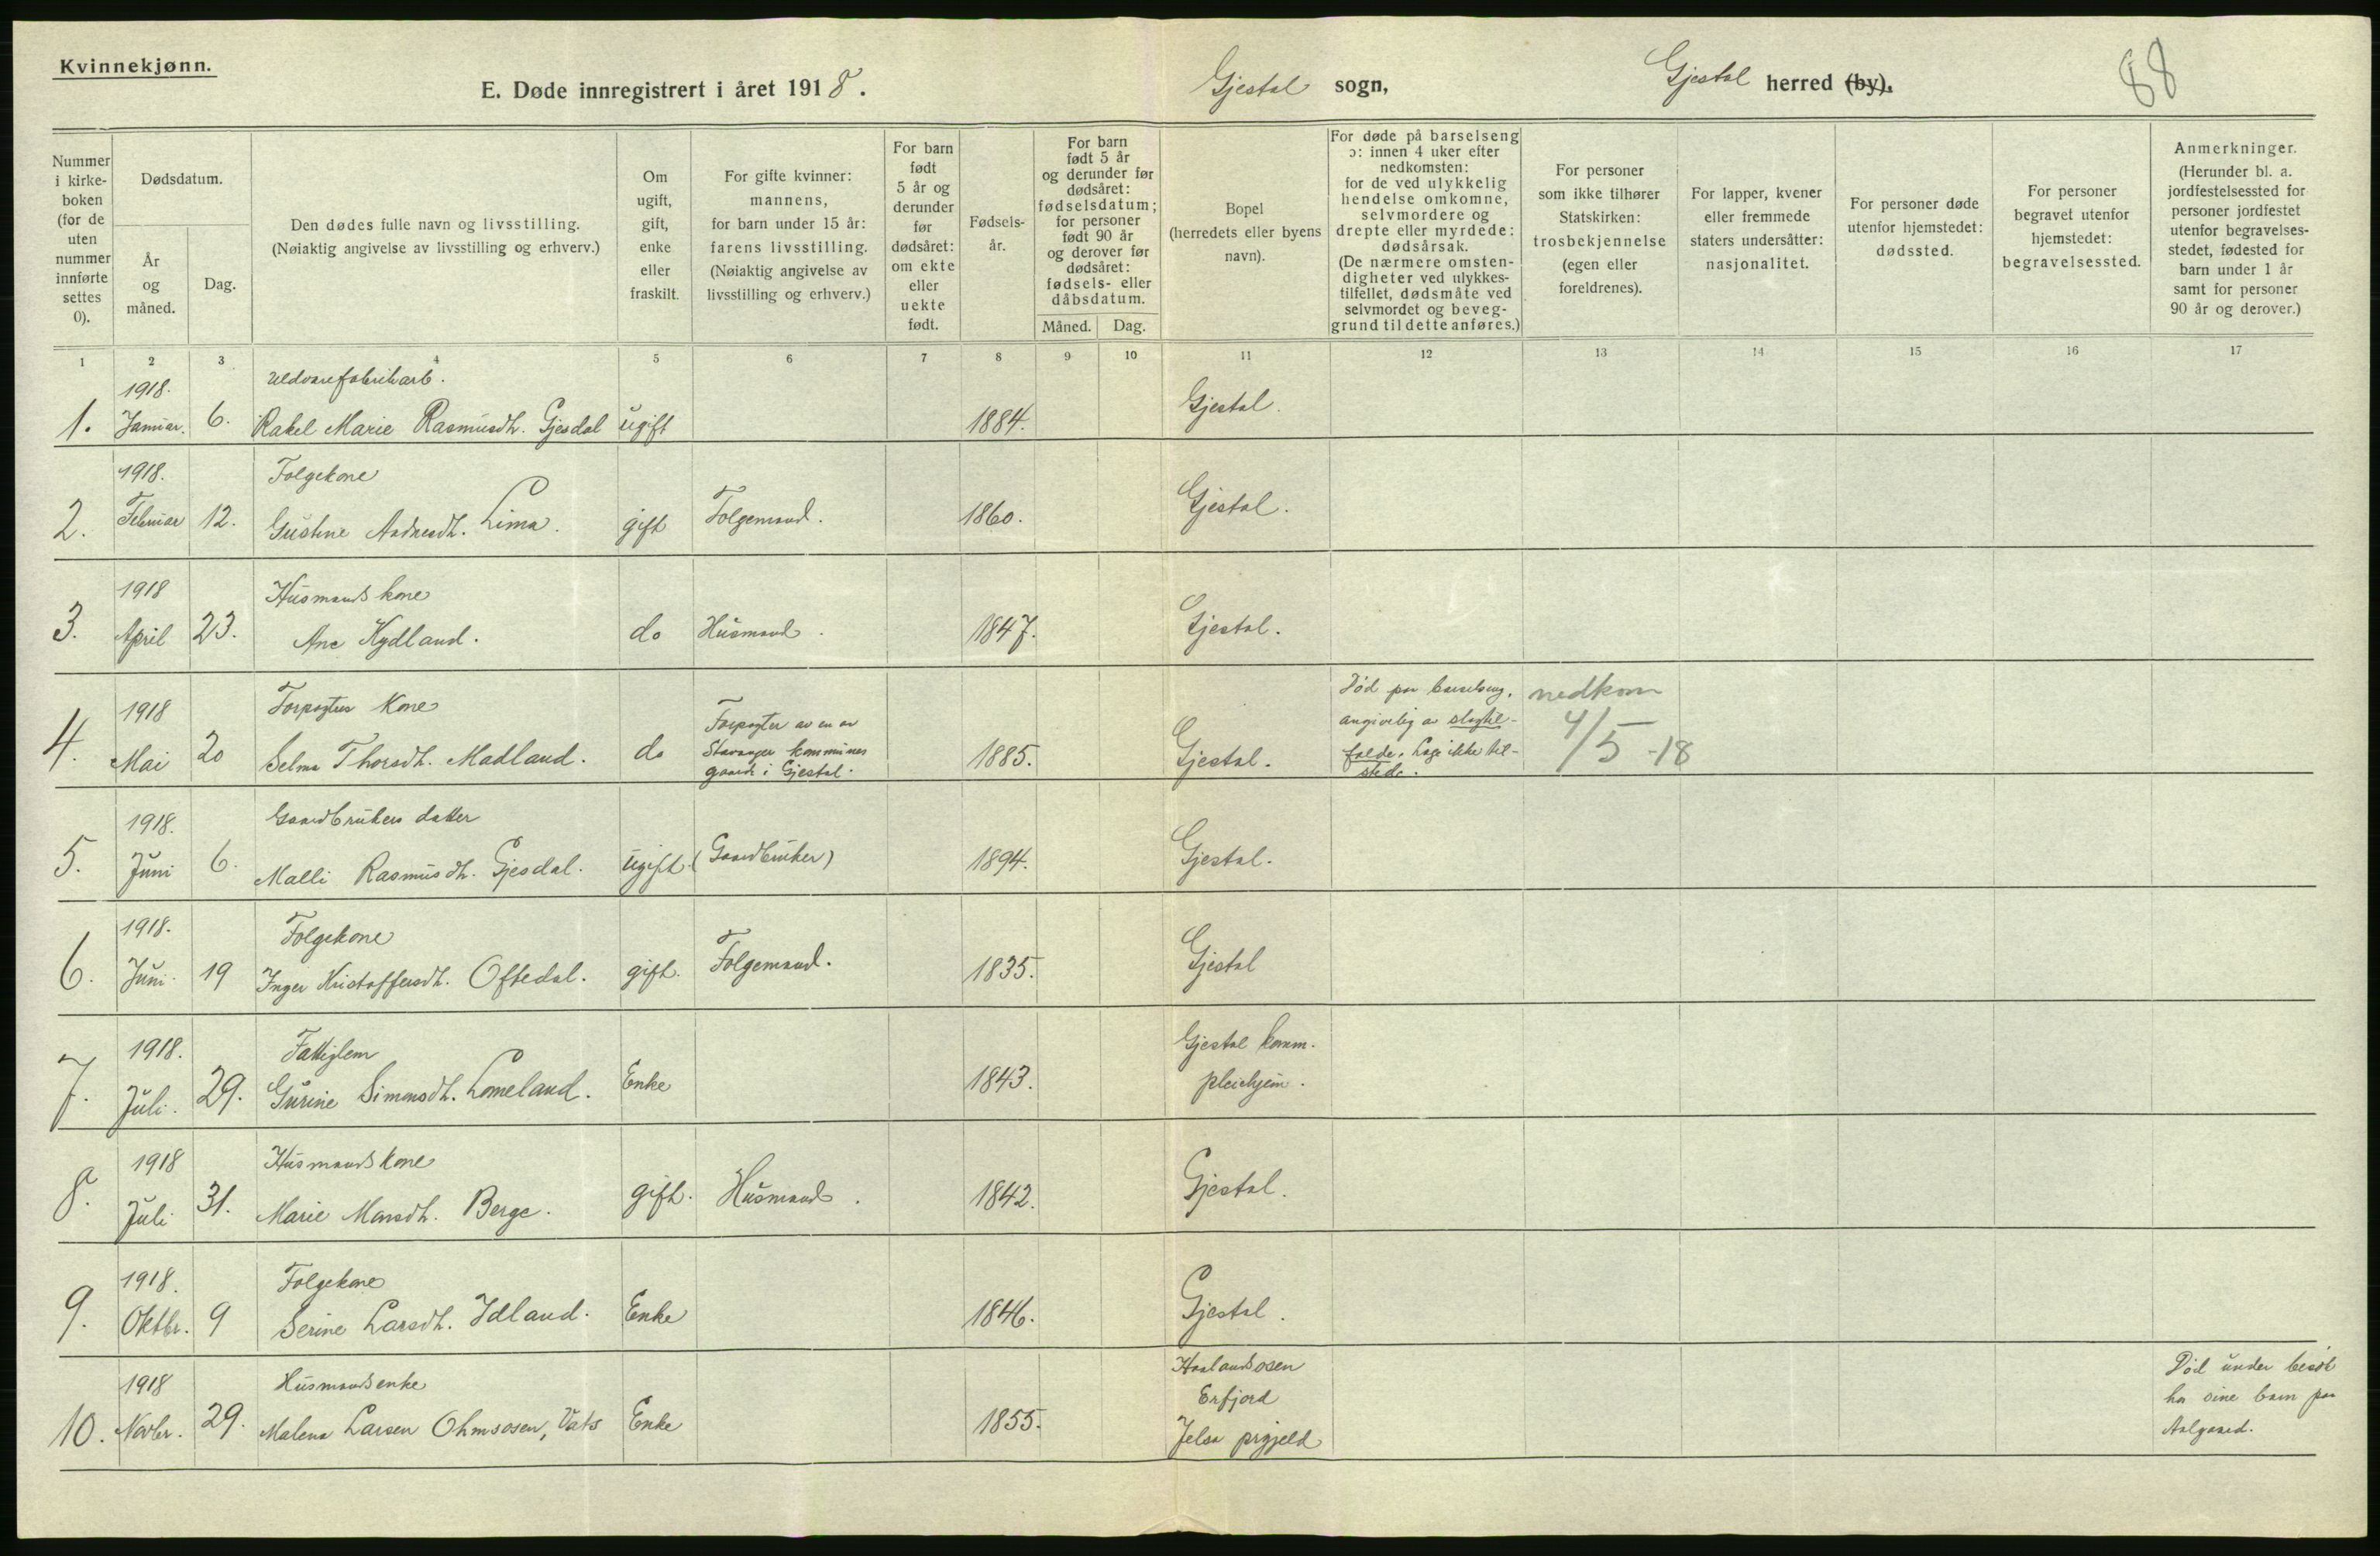 Kvinnekjønn.
E. Døde innregistrert i året 1918.
Gjestal sogn,
Gjestal herred (by).
88
Nummer i kirke-boken (for de uten nummer innførte settes 0).
Dødsdatum.
År og måned.
Dag.
Den dødes fulle navn og livsstilling.
(Nøiaktig angivelse av livsstilling og erhverv.)
Om ugift, gift, enke eller fraskilt.
For gifte kvinner: mannens, for barn under 15 år: farens livsstilling. (Nøiaktig angivelse av livsstilling og erhverv.)
For barn født 5 år og derunder før dødsåret: om ekte eller uekte født.
Fødsels-år.
For barn født 5 år og derunder før dødsåret: fødselsdatum; for personer født 90 år og derover før dødsåret: fødsels- eller dåbsdatum.
Måned. Dag.
Bopel (herredets eller byens navn).
For døde på barselseng ɔ: innen 4 uker efter nedkomsten: for de ved ulykkelig hendelse omkomne, selvmordere og drepte eller myrdede: dødsårsak. (De nærmere omsten-digheter ved ulykkes-tilfellet, dødsmåte ved selvmordet og beveg-grund til dette anføres.)
For personer som ikke tilhører Statskirken: trosbekjennelse (egen eller foreldrenes).
For lapper, kvener eller fremmede staters undersåtter: nasjonalitet.
For personer døde utenfor hjemstedet: dødssted.
For personer begravet utenfor hjemstedet: begravelsessted.
Anmerkninger. (Herunder bl. a. jordfestelsessted for personer jordfestet utenfor begravelses-stedet, fødested for barn under 1 år samt for personer 90 år og derover.)
1 2 3 4 5 6 7 8 9 10 11 12 13 14 15 16 17
1918. Uldvarefabrikarb.
1. Januar. 6. Rakel Marie Rasmusdh. Gjesdal ugift 1884. Gjestal.
1918. Folgekone
2. Februar 12. Gustine Andreasdh. Lima. gift Folgemand. 1860. Gjestal.
1918 Husmandskone
3. April 23. Ane Kydland. do Husmand. 1847. Gjestal.
1918 Forpagters Kone
4. Mai 20 Selma Thorsdh. Madland. do Forpagter av en av Stavanger kommunes gaarde i Gjestal. 1885. Gjestal. Død paa barselseng, angivelig av slagtil-fælde. Læge ikke til-stede. nedkom 4/5-18
1918. Gaardbrukers datter
5. Juni 6. Malli Rasmusdh. Gjesdal. ugift. (Gaardbruker) 1894. Gjestal.
1918. Folgekone
6. Juni. 19 Inger Kristoffersdh. Oftedal. gift. Folgemand. 1835. Gjestal
1918. Fattiglem
7. Juli. 29. Gurine Simonsdh. Lomeland. Enke 1843. Gjestal komm. pleiehjem.
1918 Husmandskone
8. Juli 31. Marie Monsdh. Berge. gift. Husmand. 1842. Gjestal.
1918. Folgekone
9. Oktbr. 9 Serine Larsdh. Idland. Enke 1846. Gjestal.
1918 Husmandsenke
10. Novbr. 29. Malena Larsen Ohmsosen, Vats Enke 1855. Haalandsosen Erfjord Jelsa prgjeld Død under besøk hos sine barn paa Aalgaard.